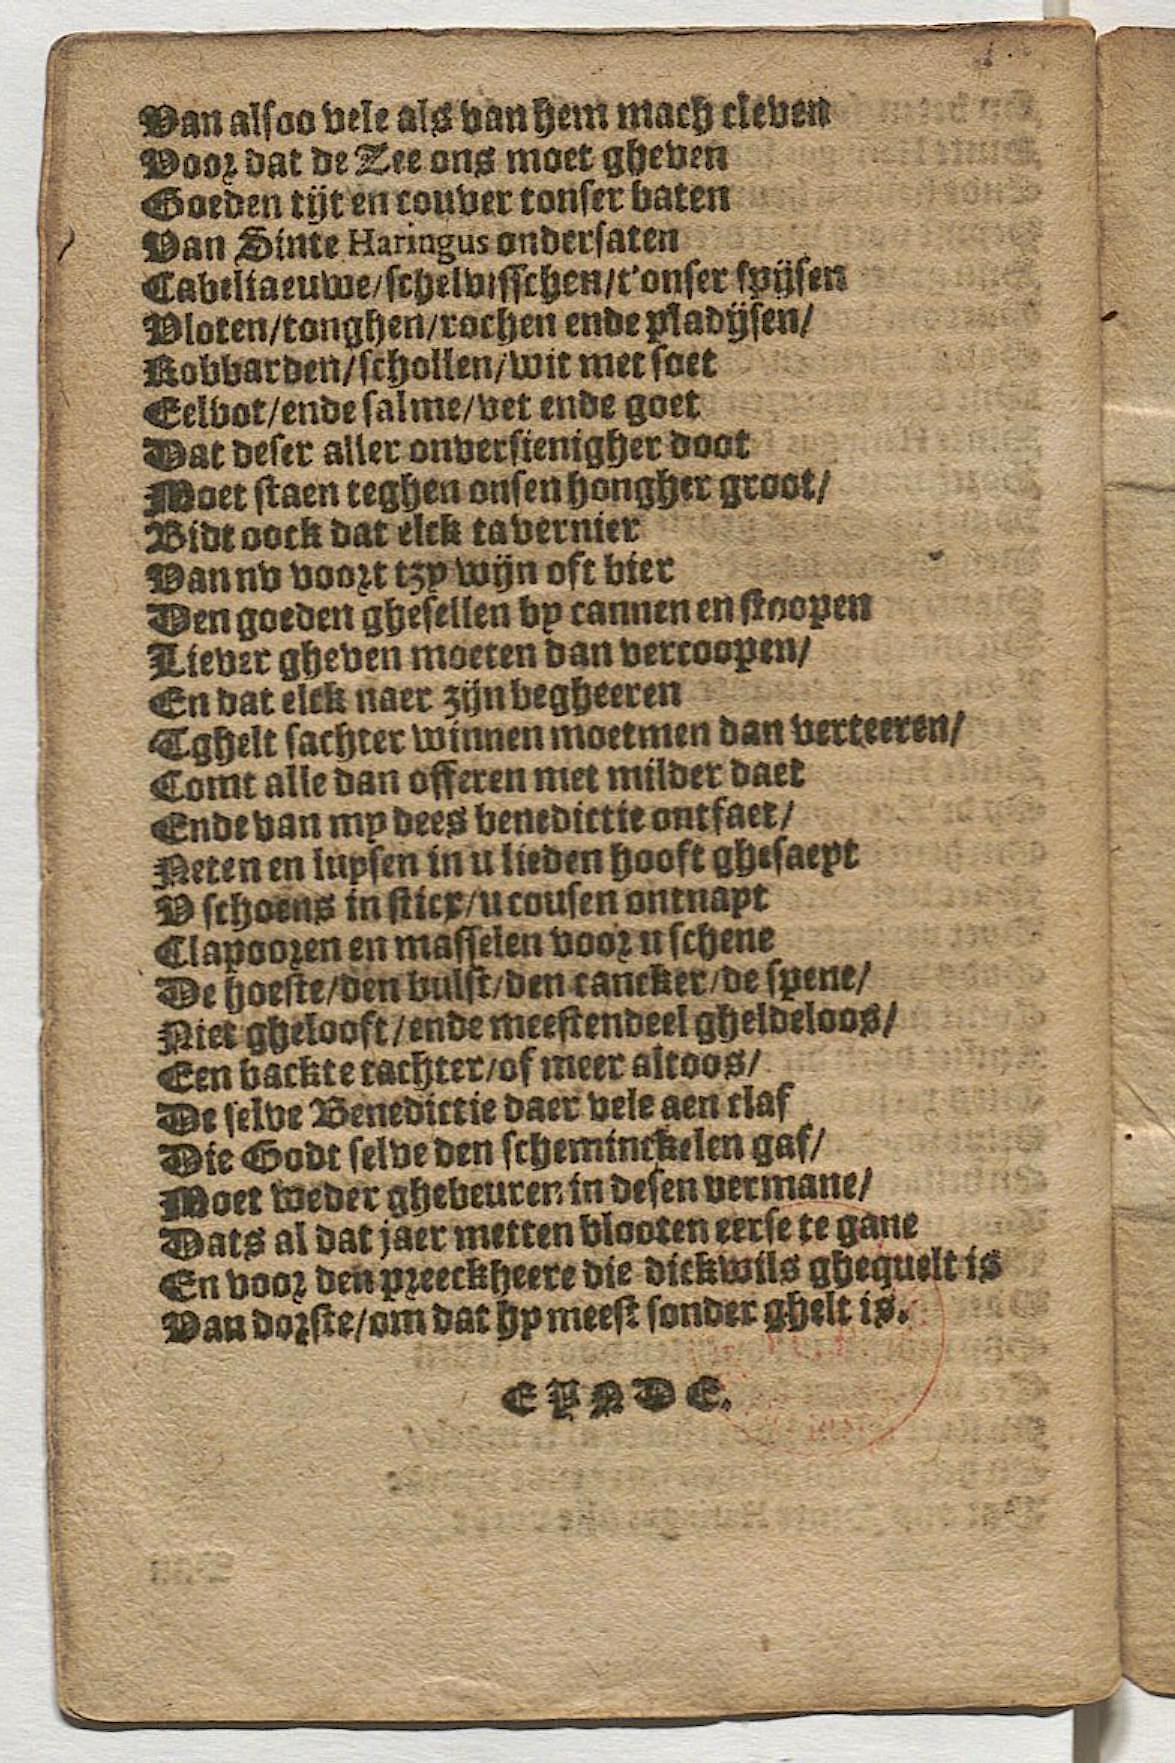 Van alsoo vele als van hem mach cleven
Voor dat de Zee ons moet gheven
Goeden tijt en couver tonser baten
Van Sinte Haringus ondersaten
Cabeliaeuwe/schelvisschen/t'onser spijsen
Vloten/tonghen/rochen ende pladijsen/
Robbarden/schollen/wit met soet
Eelbot/ende salme/vet ende goet
Dat deser aller onversienigher doot
Moet staen teghen onsen hongher groot/
Bidt oock dat elck tavernier
Van nv voort tzy wijn oft bier
Den goeden ghesellen by cannen en stoopen
Liever gheven moeten dan vercoopen/
En dat elck naer zijn begheeren
Tghelt sachter winnen moetmen dan verteeren/
Comt alle dan offeren met milder daet
Ende van my dees benedictie ontfaet/
Neten en luysen in u lieden hooft ghesaeyt
V schoens in sticx/u cousen ontnapt
Clapooren en masselen voor u schene
De hoeste/den bulst/den cancker/de spene/
Niet ghelooft/ende meestendeel gheldeloos/
Een backte tachter/of meer altoos/
De selve Benedictie daer vele aen claf
Die Godt selve den scheminckelen gaf/
Moet weder ghebeuren in desen vermane/
Dats al dat jaer metten blooten eerse te gane
En voor den preeckheere die dickwils ghequelt is
Van dorste/om dat hy meest sonder ghelt is.
EYNDE.